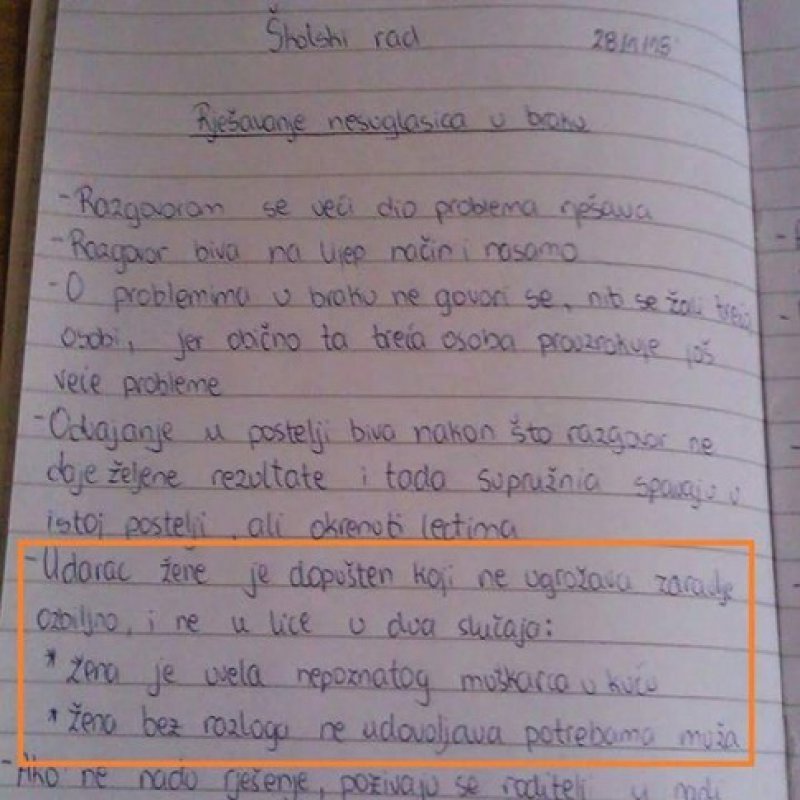 Školski rad 28/1/15
Rješavanje nesuglasica u braku
- Razgovorom se veći dio problema rješava
- Razgovor biva na lijep način i nasamo
- O problemima u braku ne govori se, niti se žali trećoj
osobi, jer obično ta treća osoba prouzrokuje još
veće probleme
- Odvajanje u postelji biva nakon što razgovor ne
daje željene rezultate i tada supružnia spavaju u
istoj postelji, ali okrenuti leđima
- Udarac žene je dopušten koji ne ugrožava zaradje
ozbiljno, i ne u lice u dva slučaja:
* žena je uvela nepoznatog muškarca u kuću
* žena bez razloga ne udovoljava potrebama muža
- Ako ne nađu rješenje, pozivaju se roditelji u